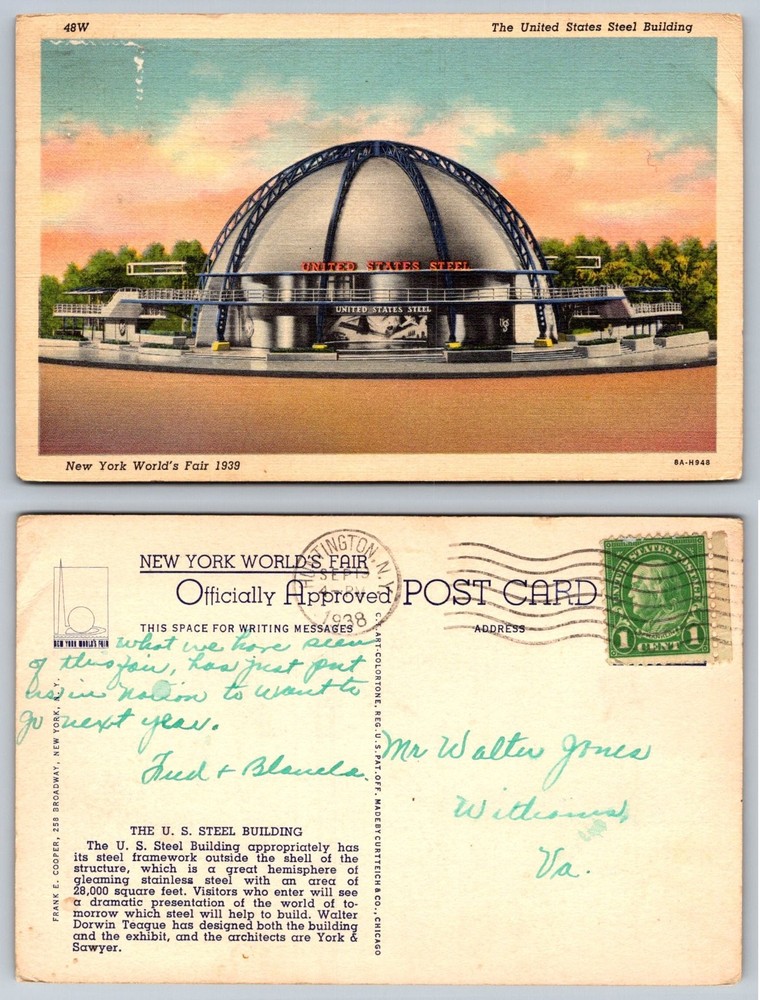 48W
The United States Steel Building
UNITED STATES STEEL
UNITED STATES STEEL
New York World's Fair 1939
8A-H948
NEW YORK WORLD'S FAIR
Officially Approved POST CARD
THIS SPACE FOR WRITING MESSAGES
ADDRESS
HUNTINGTON, N.Y.
SEP 19
1938
UNITED STATES POSTAGE
FRANKLIN
1 CENT 1
NEW YORK WORLD'S FAIR
What we have seen
of this fair, has just put
us in notion to want to
go next year.
Fred + Blanche.
Mr Walter Jones
Williams,
Va.
THE U. S. STEEL BUILDING
The U. S. Steel Building appropriately has
its steel framework outside the shell of the
structure, which is a great hemisphere of
gleaming stainless steel with an area of
28,000 square feet. Visitors who enter will see
a dramatic presentation of the world of to-
morrow which steel will help to build. Walter
Dorwin Teague has designed both the building
and the exhibit, and the architects are York &
Sawyer.
FRANK E. COOPER, 258 BROADWAY, NEW YORK, N. Y.
C. T. ART-COLORTONE, REG. U.S. PAT. OFF. MADE BY CURT TEICH & CO., CHICAGO